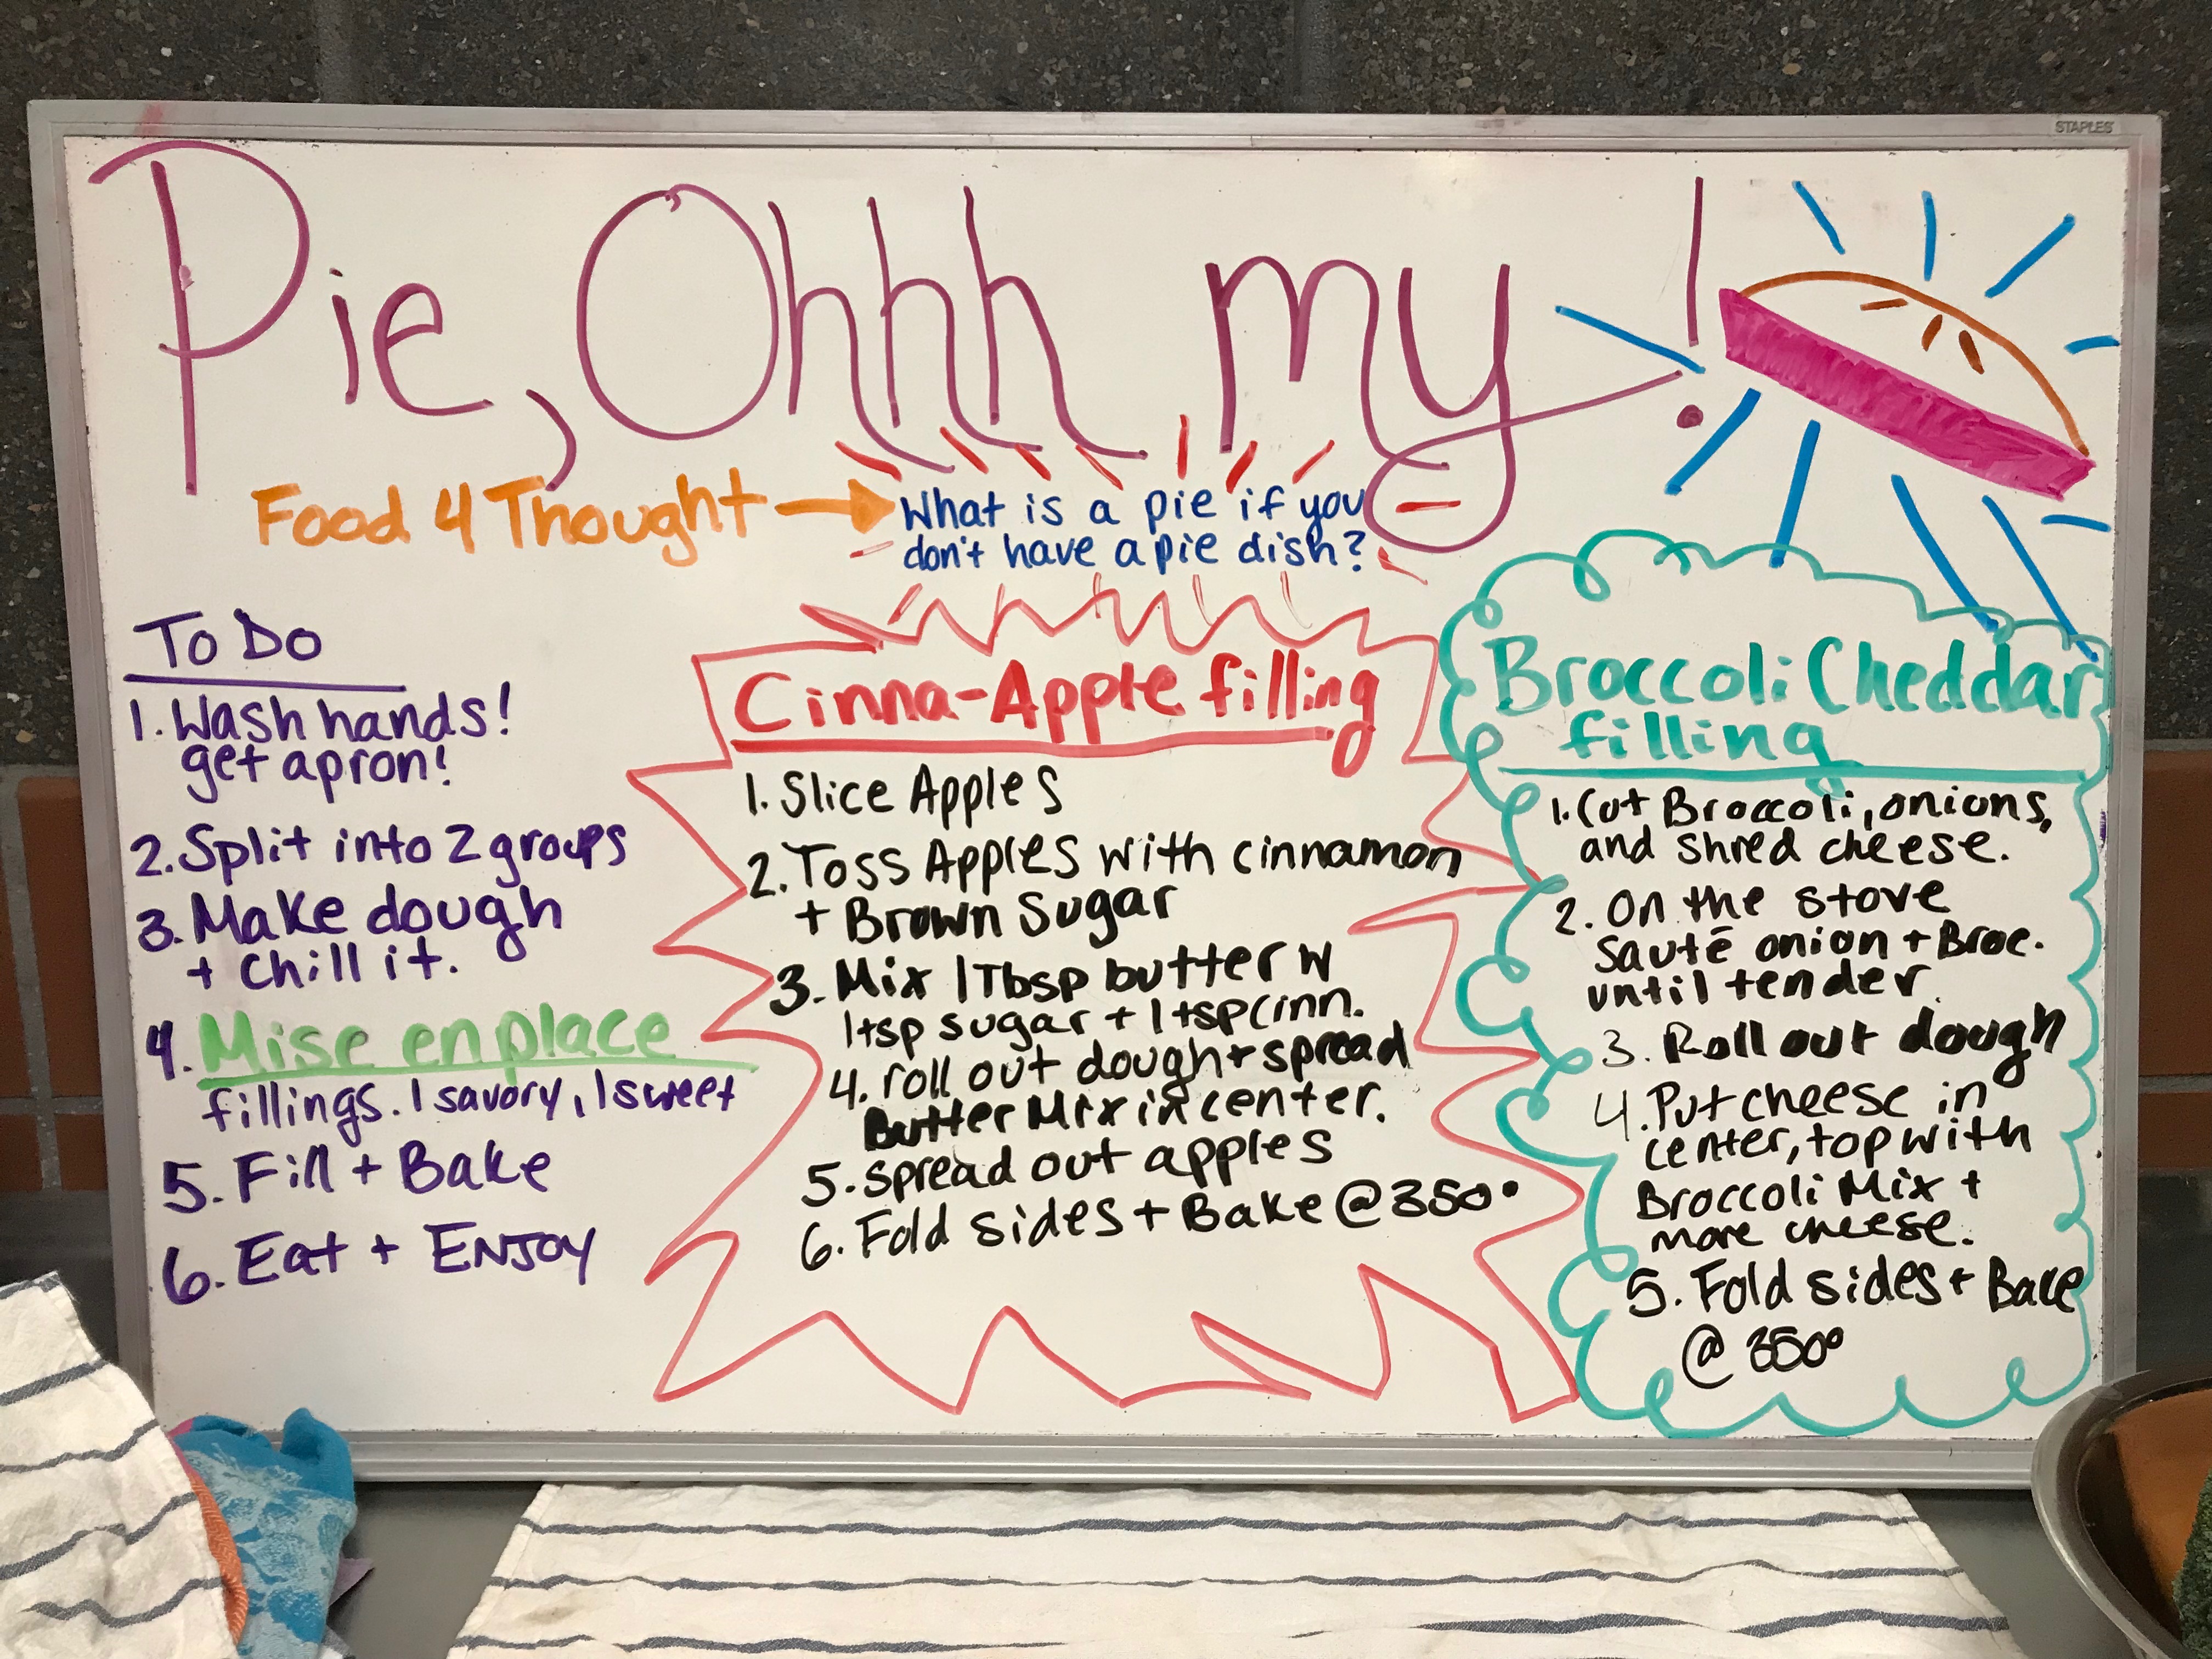 STAPLES
Pie, Ohhh my!
Food 4 Thought → What is a pie if you
don't have a pie dish?
To Do
1. Wash hands!
get apron!
2. Split into 2 groups
3. Make dough
+ chill it.
4. Mise en place
fillings. 1 savory, 1 sweet
5. Fill + Bake
6. Eat + ENJOY
Cinna-Apple filling
1. Slice Apples
2. Toss Apples with cinnamon
+ Brown Sugar
3. Mix 1 Tbsp butter w
1 tsp sugar + 1 tsp cinn.
4. roll out dough + spread
Butter Mix in center.
5. spread out apples
6. Fold sides + Bake @ 350°
Broccoli Cheddar
filling
1. Cut Broccoli, onions,
and shred cheese.
2. On the stove
sauté onion + Broc.
until tender.
3. Roll out dough
4. Put cheese in
center, top with
Broccoli Mix +
more cheese.
5. Fold sides + Bake
@ 350°